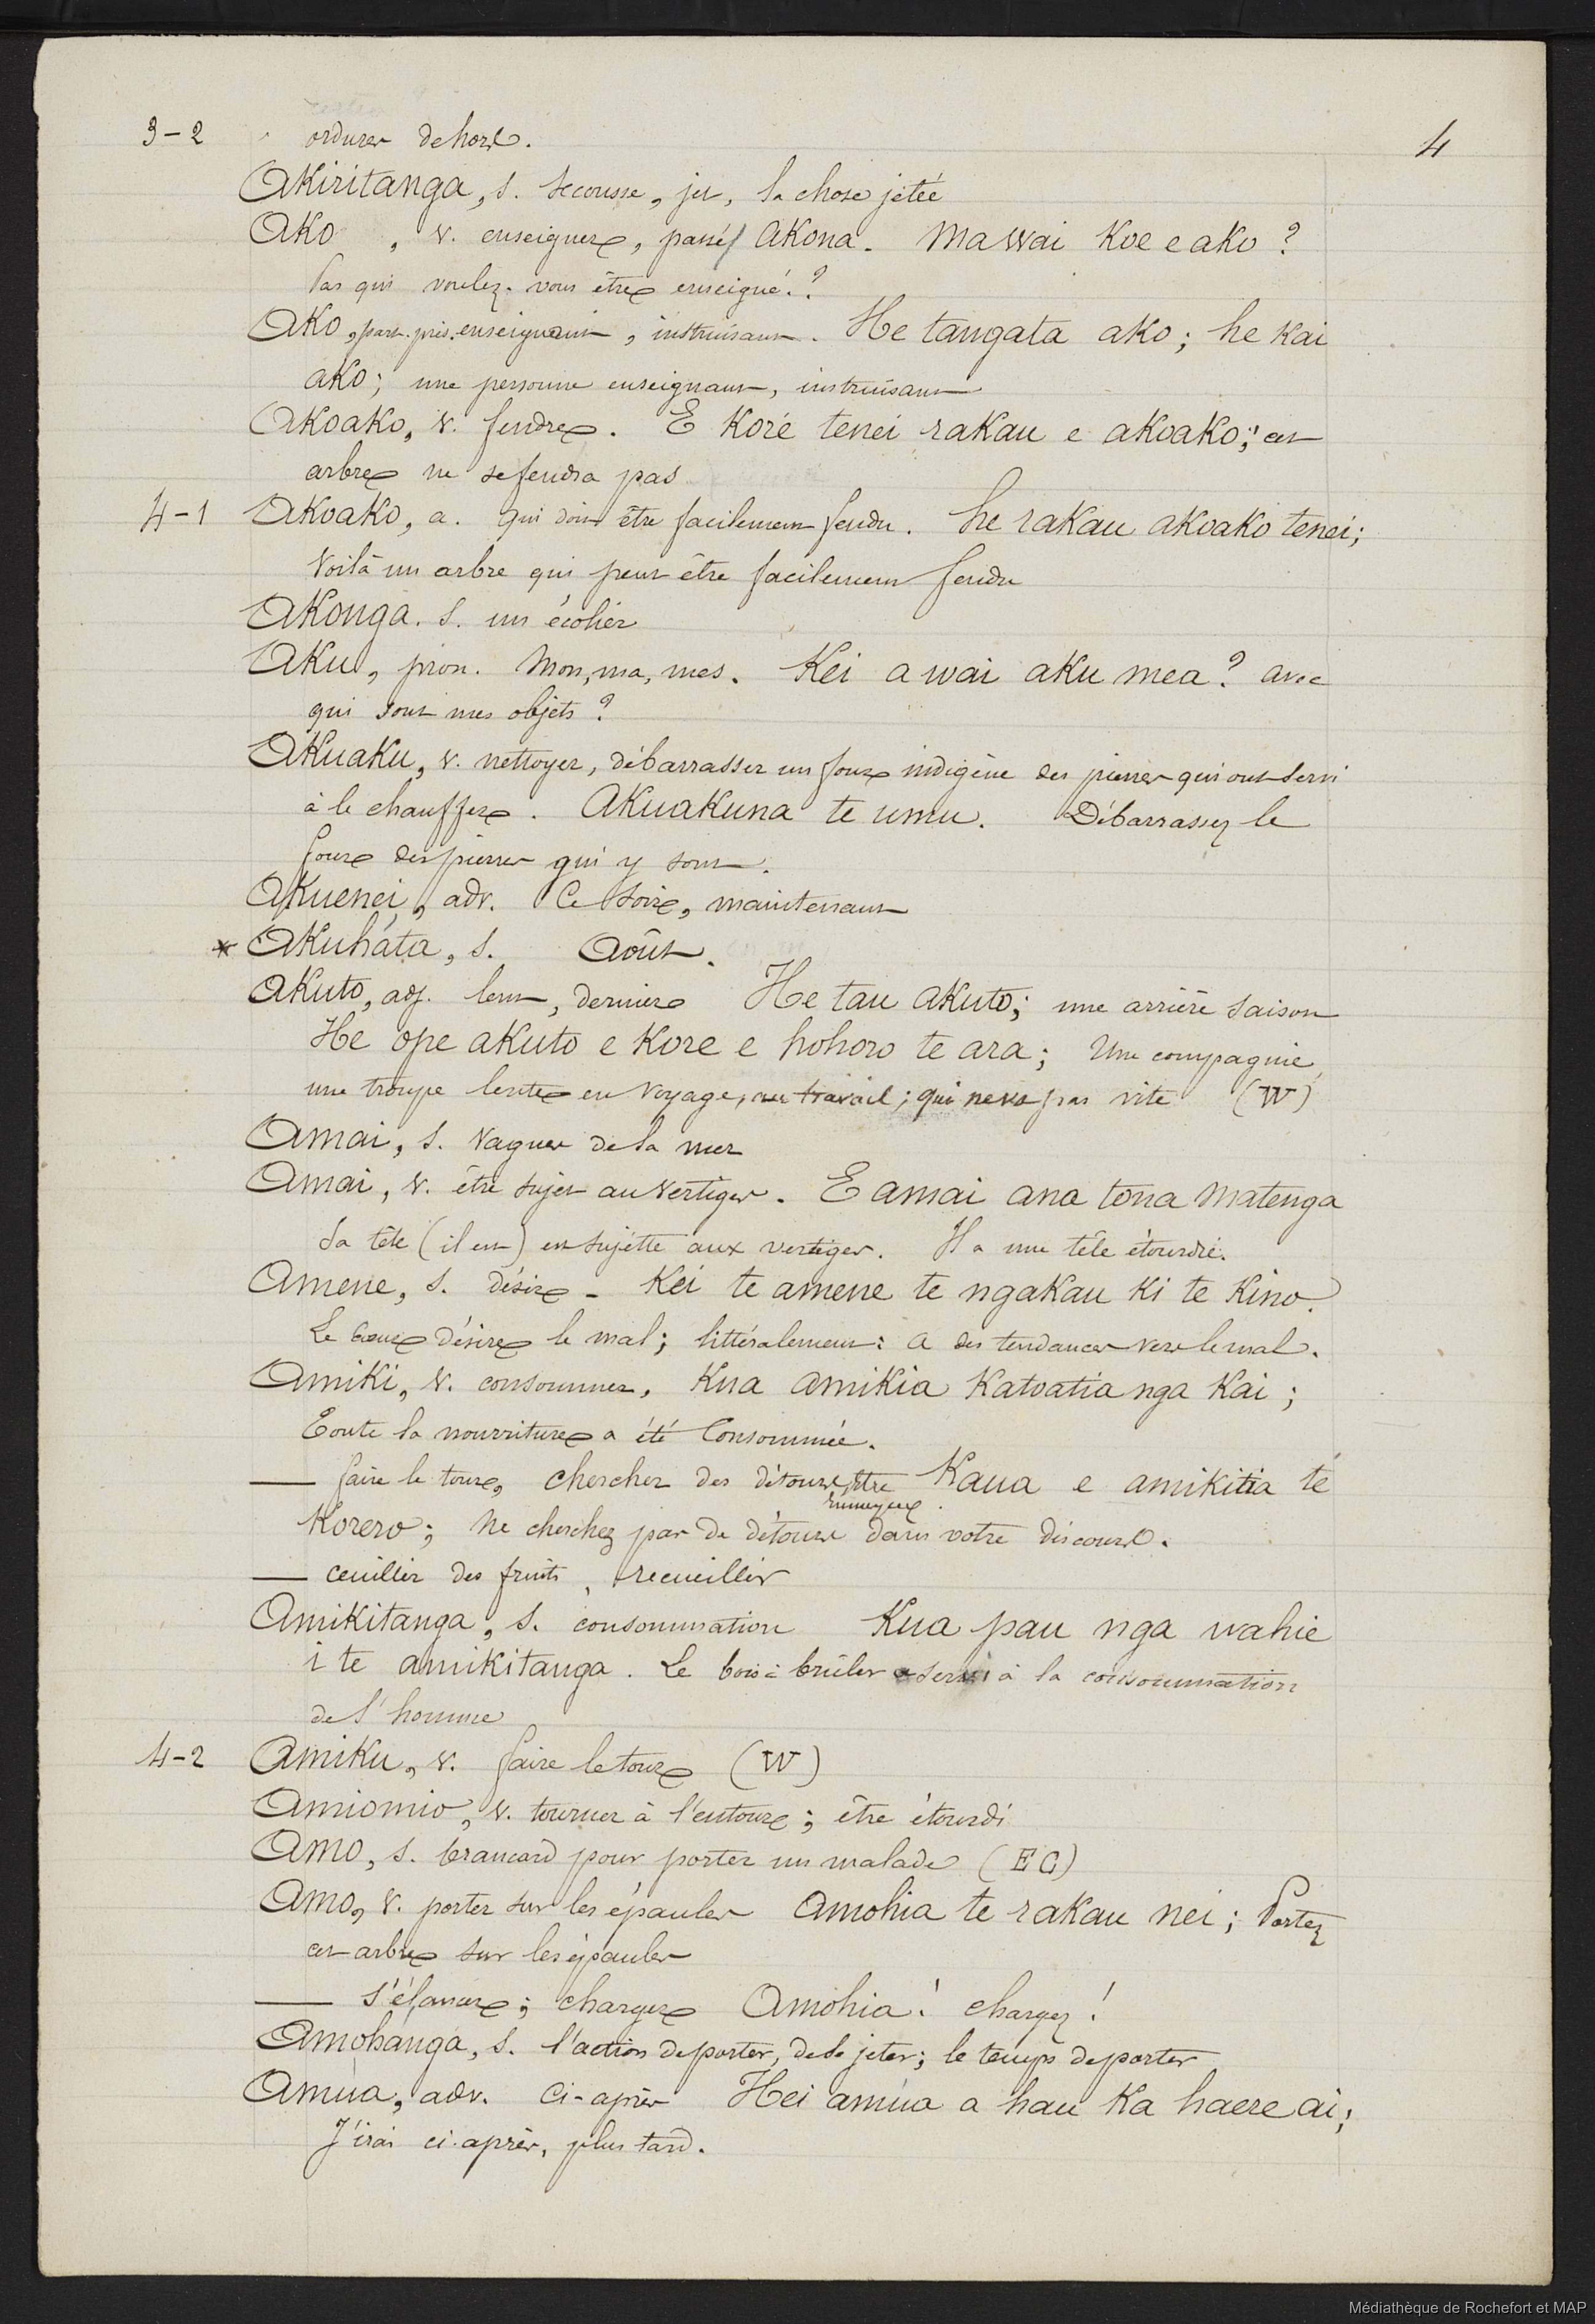 3-2 ordures dehors.
4
Akiritanga, s. secousse, jet, la chose jetée
Ako, v. enseigner, passé/ Akona. Ma wai koe e ako ?
Par qui voulez-vous être enseigné. ?
Ako, part. prés. enseignant, instruisant. He tangata ako; he kai
ako; une personne enseignant, instruisant
Akoako, v. fendre. E koré tenei rakau e akoako; cet
arbre ne se fendra pas
4-1 Akoako, a. qui doit être facilement fendu. he rakau akoako tenei;
Voilà un arbre qui peut être facilement fendu
Akonga. s. un écolier
Aku, pron. Mon, ma, mes. Kei a wai aku mea ? avec
qui sont mes objets ?
Akuaku, v. nettoyer, débarrasser un four indigène des pierres qui ont servi
à le chauffer. Akuakuna te umu. Débarrassez le
four des pierres qui y sont.
Akuenei, adv. Ce soir, maintenant
* Akuhata, s. Août.
Akuto, adj. lent, dernier He tau akuto; une arrière saison
He ope akuto e kore e hohoro te ara; Une compagnie,
une troupe lente en voyage, au travail; qui ne va pas vite (W)
Amai, s. Vagues de la mer
Amai, v. être sujet au vertiges. E amai ana tona matenga
Sa tête (il est) est sujette aux vertiges. Il a une tête étourdie.
Amene, s. désir - Kei te amene te ngakau ki te kino.
Le cœur désire le mal; littéralement: a des tendances vers le mal.
Amiki, v. consommer. Kua amikia katoatia nga kai;
Toute la nourriture a été Consommée.
— faire le tour, chercher des détours, être Kaua e amikitia te
ennuyeux.
Korero; Ne cherchez pas de détours dans votre discours.
— ceuillir des fruits, recueillir
Amikitanga, s. consommation Kua pau nga wahie
i te amikitanga. Le bois à brûler a servi à la consommation
de l'homme
4-2 Amiku, v. faire le tour (W)
Amiomio, v. tourner à l'entour; être étourdi
Amo, s. brancard pour porter un malade (E C)
Amo, v. porter sur les épaules Amohia te rakau nei; Portez
cet arbre sur les épaules
— s'élancer; charger Amohia ! chargez !
Amohanga, s. l'action de porter, de se jeter; le temps de porter
Amua, adv. Ci-après Hei amua a hau ka haere ai;
J'irai ci-après, plus tard.
Médiathèque de Rochefort et MAP